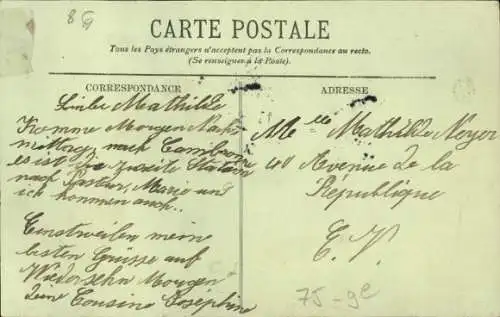 8 G
CARTE POSTALE
Tous les Pays étrangers n'acceptent pas la Correspondance au recto.
(Se renseigner à la Poste).
CORRESPONDANCE
ADRESSE
Liebe Mathilde
Komme Morgen Nach-
mittag nach Cambronne
es ist die zweite Station
nach Pasteur, Marie und
ich kommen auch..
Einstweilen meine
besten Grüsse auf
Wiedersehn Morgen
Deine Cousine Joséphine
Melle Mathilde Noyer
40 Avenue de la
République
E. V.
75 - 9e